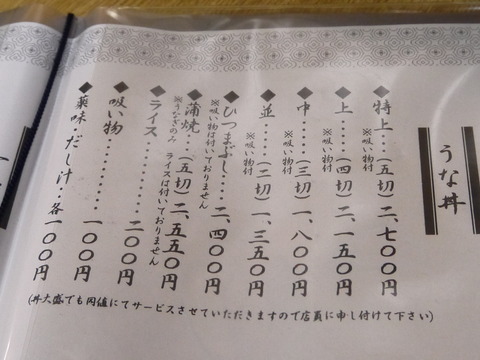 うな丼
◆特上…(五切)二、七〇〇円
※吸い物付
◆上……(四切)二、一五〇円
※吸い物付
◆中……(三切)一、八〇〇円
※吸い物付
◆並……(二切)一、三五〇円
※吸い物付
◆ひつまぶし…二、四〇〇円
※吸い物は付いておりません
◆蒲焼…(五切)二、五五〇円
※うなぎのみ ライスは付いておりません
◆ライス…………二〇〇円
◆吸い物…………一〇〇円
◆薬味・だし汁…各一〇〇円
(丼大盛でも同値にてサービスさせていただきますので店員に申し付けて下さい)